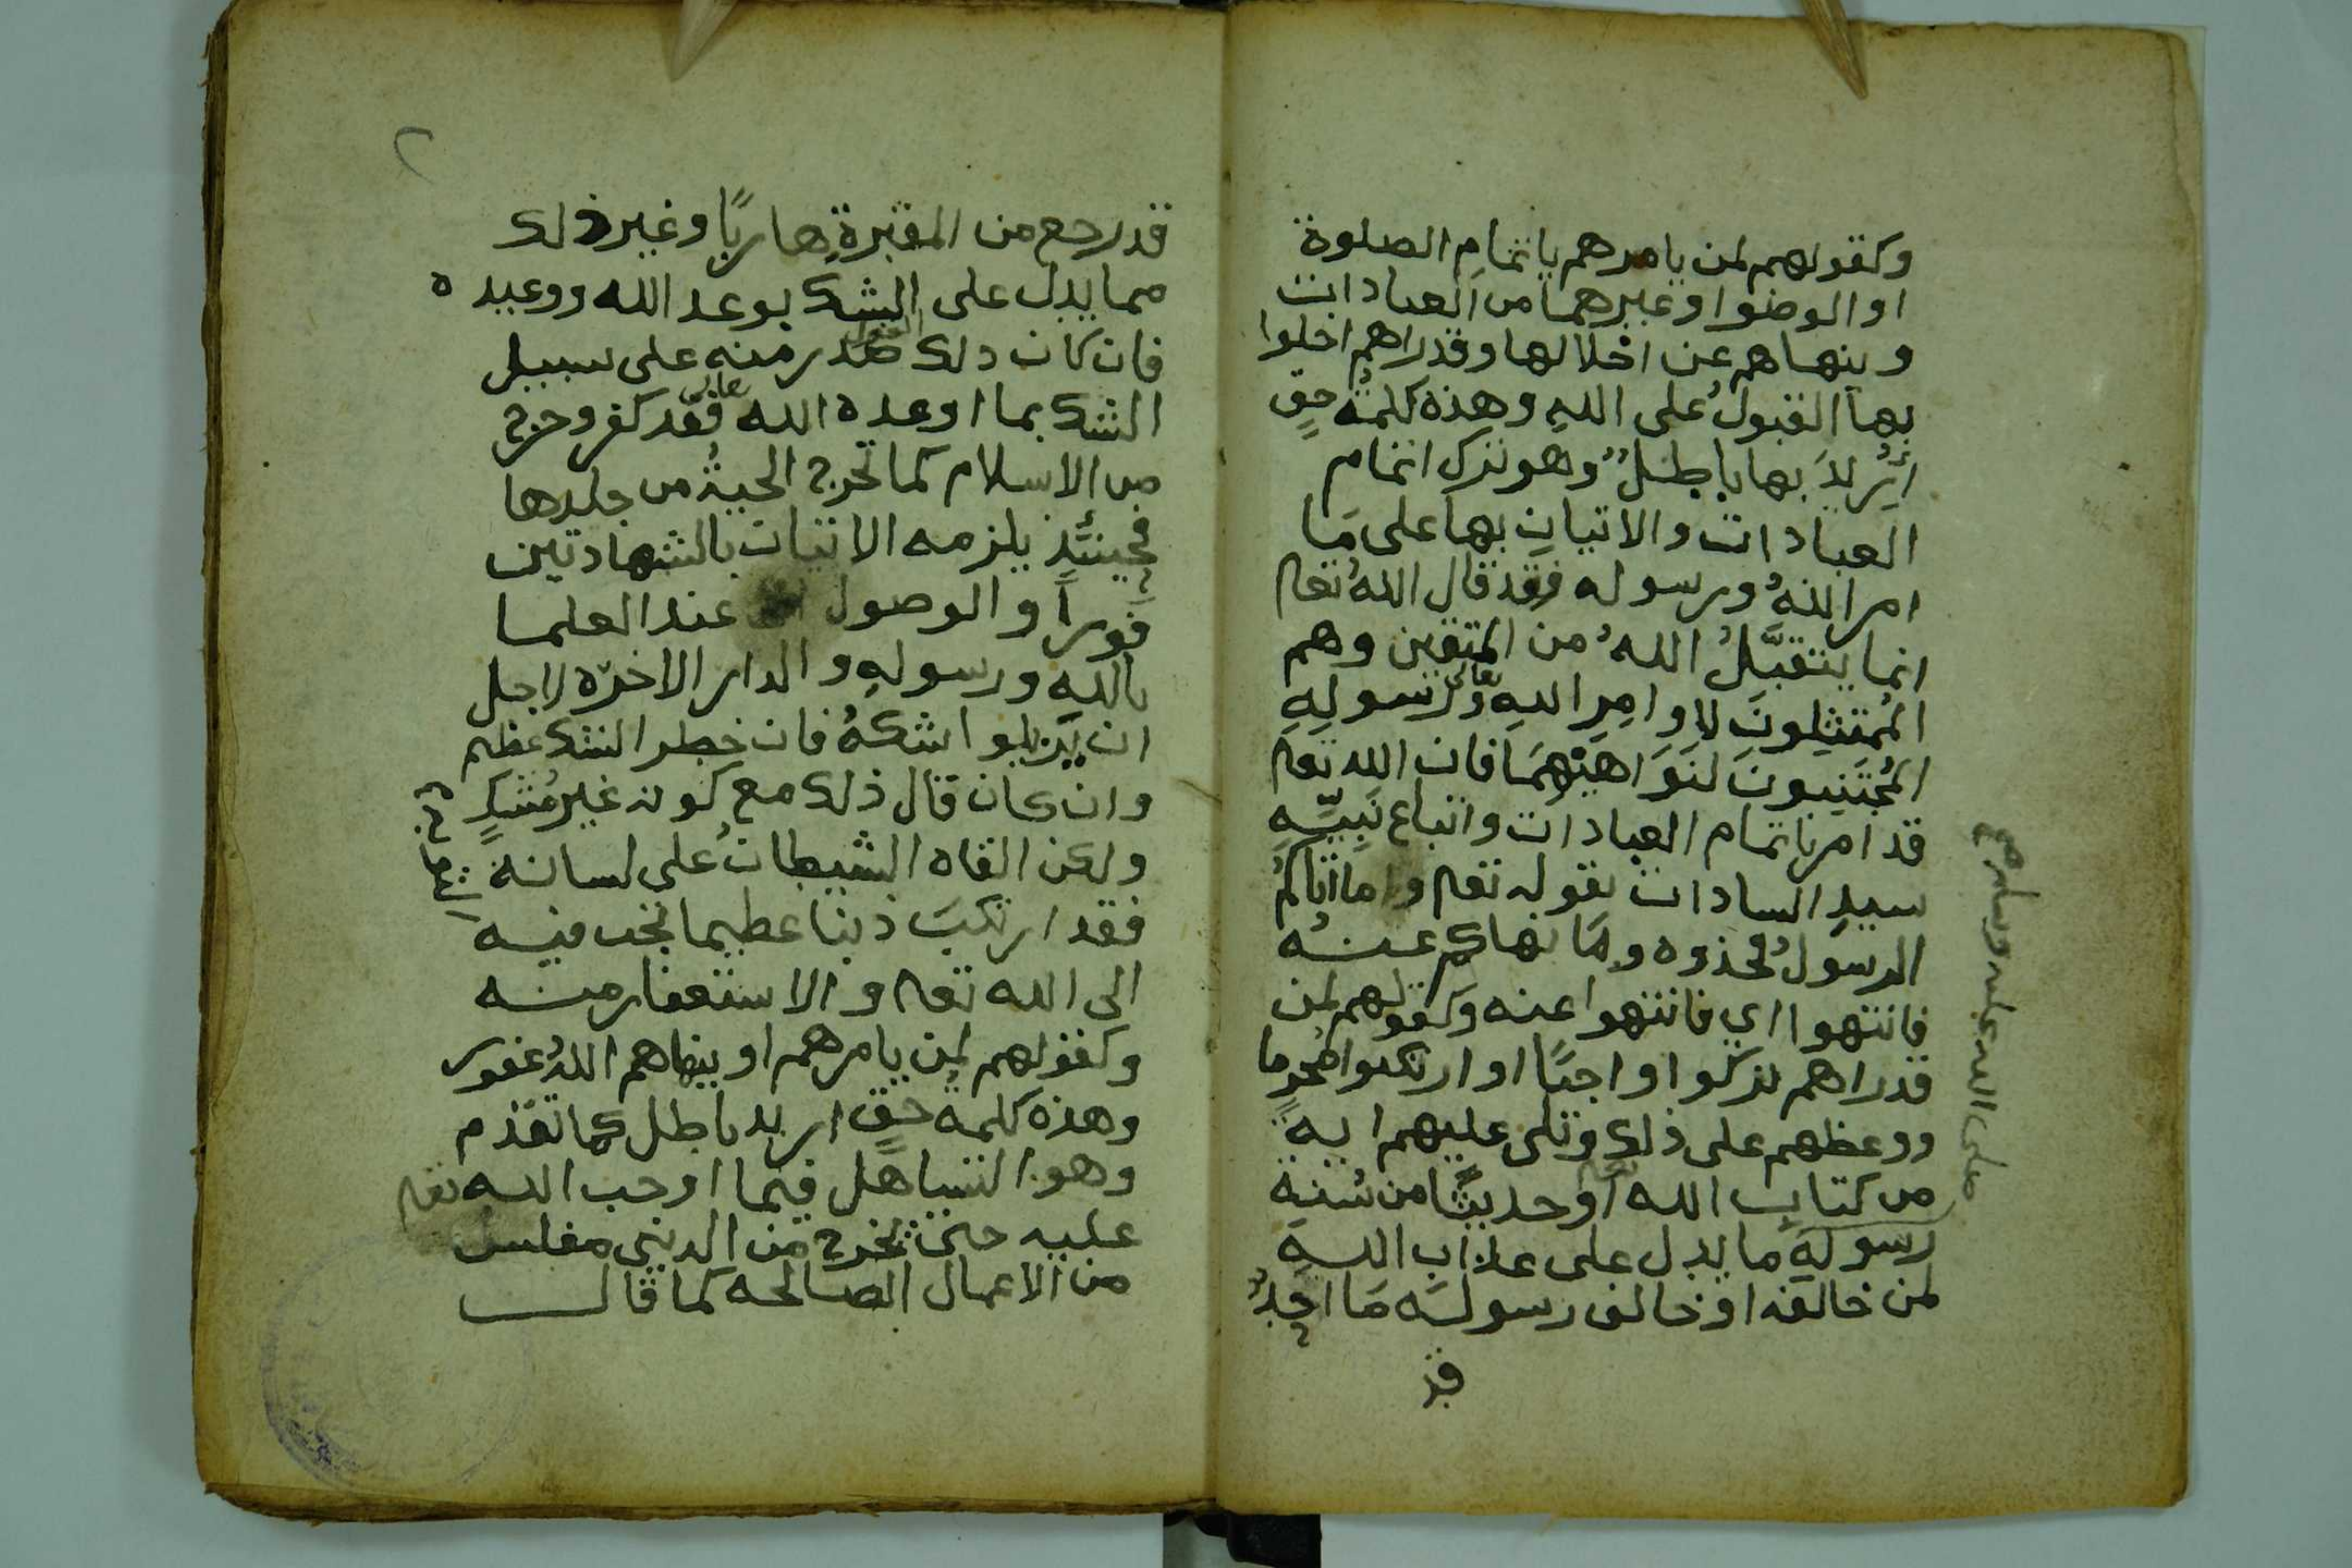 وكقولهم لمن يامرهم باتمام الصلوة
او الوضوا وغيرهما من العبادات
وينهاهم عن اخلالها وقد راهم اخلوا
بها القبولُ على اللهِ وهذه كلمةُ حقٍ
اُرِيدَ بها باطلٌ وهو ترك اتمام
العبادات والاتيانِ بها على مَا
امر اللهُ ورسوله فقد قال اللهُ تعا
انما يتقبَّلُ اللهُ من المتقين وهم
المُمتثِلونَ لاِوامِرِ اللهِ تعالى ورسولِهِ
المُجتَنِبونَ لنَوَاهيْهِمَا فان الله تعا
قد امرنا تمام العبادات واتباع نبيِّهِ
سيدِ السادات بقوله تعا وما اتاكمُ
الرسولُ فخذوه ومَا نهاكم عنهُ
فانتهوا اي فانتهوا عنه وكقولهم لمن
قد راهم تركوا واجبًا او ارتكبوا محرما
ووعظهم على ذلك وتلى عليهم ايةً
من كتابِ الله تعا او حديثًا من سُنةِ
رسولهِ ما يدل على عذاب اللهِ
لمن خالفه او خالف رسولَه مَا احدٌ
قد
صلى الله عليه وسلم صح
٢
قد رجع من المقبرةِ هاربًا وغير ذلك
مما يدل على الشك بوعد الله ووعيده
فان كان ذلك القول صدر منه على سبيل
الشك بما اوعده الله تعالى فقد كفر وخرج
من الاسلام كما تخرج الحيةُ من جلدها
فحينئذٍ يلزمه الاتيان بالشهادتين
فورًا والوصول عند العلما
باللهِ ورسولهِ والدار الاخرة لاجل
ان يَزيلوا شكهُ فان خطر الشك عظيم
وان كان قال ذلك مع كونه غير مُشكٍ
ولكن القاه الشيطانُ على لسانه
فقد ارتكبَ ذنبا عظيما يجب فيه
الى الله تعا والاستغفار منه
وكقولهم لمن يامرهم او ينهاهم اللهُ غفور
وهذه كلمةُ حقٍ اريد باطل كما تقدم
وهو التساهل فيما اوجب الله تعا
عليه حتى يخرج من الدنيى مفلس
من الاعمال الصالحه كما قال